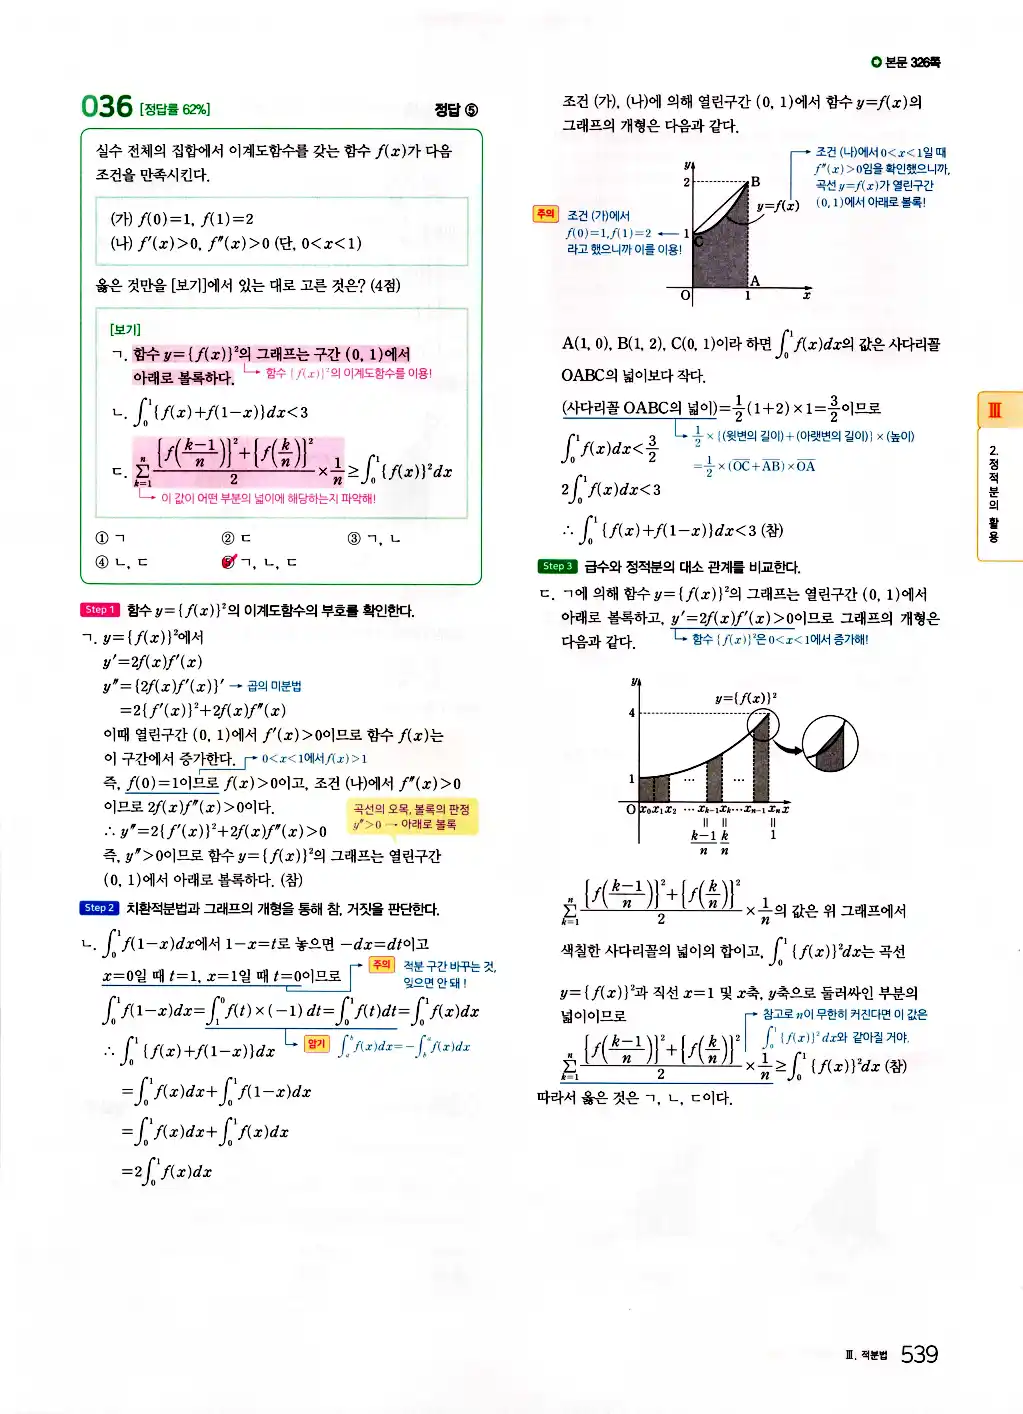 본문 326쪽
036 [정답률 62%] 정답 ⑤
실수 전체의 집합에서 이계도함수를 갖는 함수 f(x)가 다음
조건을 만족시킨다.
(가) f(0)=1, f(1)=2
(나) f′(x)>0, f″(x)>0 (단, 0<x<1)
옳은 것만을 [보기]에서 있는 대로 고른 것은? (4점)
[보기]
ㄱ. 함수 y={f(x)}²의 그래프는 구간 (0, 1)에서
아래로 볼록하다. 함수 {f(x)}²의 이계도함수를 이용!
ㄴ. ∫₀¹{f(x)+f(1−x)}dx<3
ㄷ. Σₖ₌₁ⁿ [{f((k−1)/n)}²+{f(k/n)}²]/2 × 1/n ≥ ∫₀¹{f(x)}²dx
이 값이 어떤 부분의 넓이에 해당하는지 파악해!
① ㄱ ② ㄷ ③ ㄱ, ㄴ
④ ㄴ, ㄷ ⑤ ㄱ, ㄴ, ㄷ
Step 1 함수 y={f(x)}²의 이계도함수의 부호를 확인한다.
ㄱ. y={f(x)}²에서
y′=2f(x)f′(x)
y″={2f(x)f′(x)}′ → 곱의 미분법
=2{f′(x)}²+2f(x)f″(x)
이때 열린구간 (0, 1)에서 f′(x)>0이므로 함수 f(x)는
이 구간에서 증가한다. 0<x<1에서 f(x)>1
즉, f(0)=1이므로 f(x)>0이고, 조건 (나)에서 f″(x)>0
이므로 2f(x)f″(x)>0이다.
곡선의 오목, 볼록의 판정
y″>0 → 아래로 볼록
∴ y″=2{f′(x)}²+2f(x)f″(x)>0
즉, y″>0이므로 함수 y={f(x)}²의 그래프는 열린구간
(0, 1)에서 아래로 볼록하다. (참)
Step 2 치환적분법과 그래프의 개형을 통해 참, 거짓을 판단한다.
ㄴ. ∫₀¹f(1−x)dx에서 1−x=t로 놓으면 −dx=dt이고
x=0일 때 t=1, x=1일 때 t=0이므로
주의 적분 구간 바꾸는 것,
잊으면 안 돼!
∫₀¹f(1−x)dx=∫₁⁰f(t)×(−1)dt=∫₀¹f(t)dt=∫₀¹f(x)dx
∴ ∫₀¹{f(x)+f(1−x)}dx 암기 ∫ₐᵇf(x)dx=−∫ᵇₐf(x)dx
=∫₀¹f(x)dx+∫₀¹f(1−x)dx
=∫₀¹f(x)dx+∫₀¹f(x)dx
=2∫₀¹f(x)dx
조건 (가), (나)에 의해 열린구간 (0, 1)에서 함수 y=f(x)의
그래프의 개형은 다음과 같다.
조건 (나)에서 0<x<1일 때
f″(x)>0임을 확인했으니까,
곡선 y=f(x)가 열린구간
(0, 1)에서 아래로 볼록!
주의 조건 (가)에서
f(0)=1, f(1)=2
라고 했으니까 이를 이용!
y
2 B
y=f(x)
1 C
A
O 1 x
A(1, 0), B(1, 2), C(0, 1)이라 하면 ∫₀¹f(x)dx의 값은 사다리꼴
OABC의 넓이보다 작다.
(사다리꼴 OABC의 넓이)=1/2(1+2)×1=3/2이므로
1/2×{(윗변의 길이)+(아랫변의 길이)}×(높이)
=1/2×(OC+AB)×OA
∫₀¹f(x)dx<3/2
2∫₀¹f(x)dx<3
∴ ∫₀¹{f(x)+f(1−x)}dx<3 (참)
Step 3 급수와 정적분의 대소 관계를 비교한다.
ㄷ. ㄱ에 의해 함수 y={f(x)}²의 그래프는 열린구간 (0, 1)에서
아래로 볼록하고, y′=2f(x)f′(x)>0이므로 그래프의 개형은
다음과 같다. 함수 {f(x)}²은 0<x<1에서 증가해!
y
y={f(x)}²
4
1 ··· ···
O x₀ x₁ x₂ ··· xₖ₋₁ xₖ ··· xₙ₋₁ xₙ x
(k−1)/n k/n 1
Σₖ₌₁ⁿ [{f((k−1)/n)}²+{f(k/n)}²]/2 × 1/n의 값은 위 그래프에서
색칠한 사다리꼴의 넓이의 합이고, ∫₀¹{f(x)}²dx는 곡선
y={f(x)}²과 직선 x=1 및 x축, y축으로 둘러싸인 부분의
넓이이므로
참고로 n이 무한히 커진다면 이 값은
∫₀¹{f(x)}²dx와 같아질 거야.
Σₖ₌₁ⁿ [{f((k−1)/n)}²+{f(k/n)}²]/2 × 1/n ≥ ∫₀¹{f(x)}²dx (참)
따라서 옳은 것은 ㄱ, ㄴ, ㄷ이다.
Ⅲ
2. 정적분의 활용
Ⅲ. 적분법 539